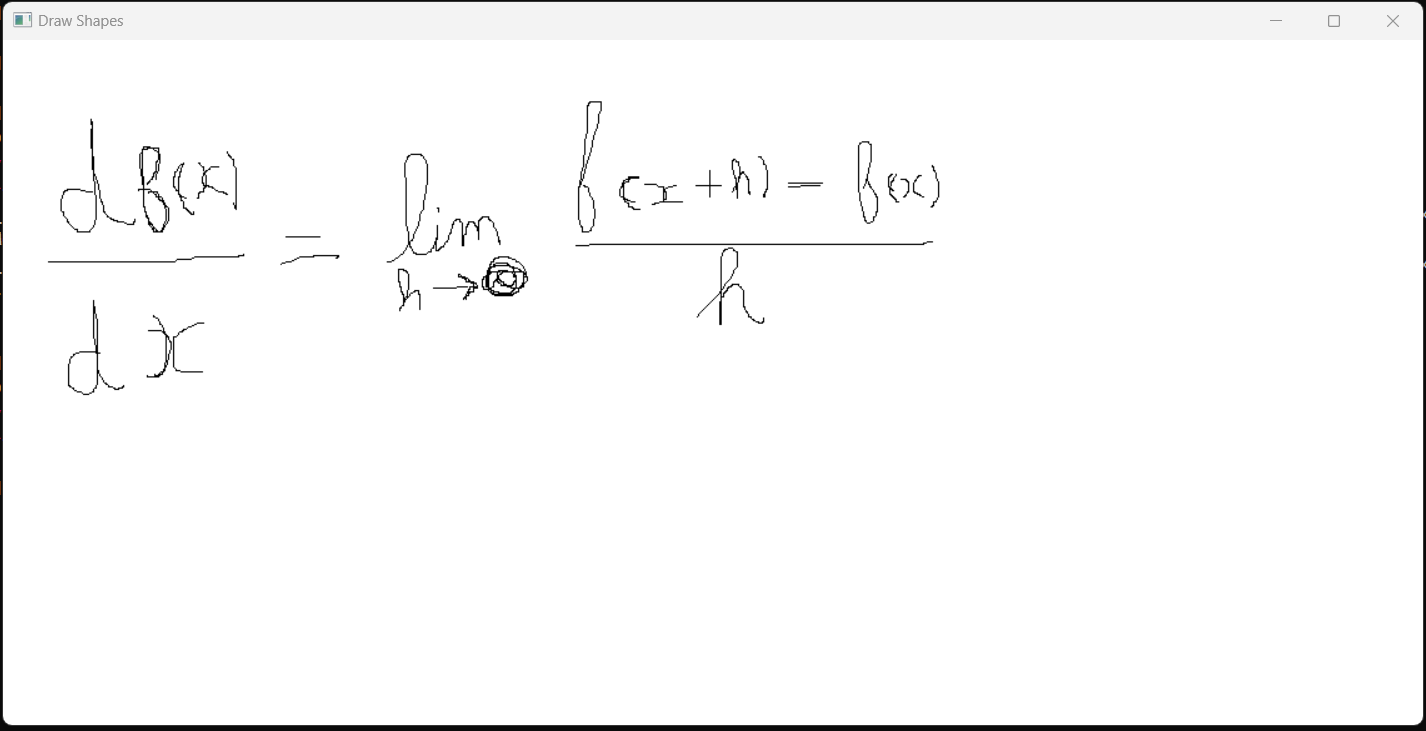 Draw Shapes
df(x)/dx = lim h→ (f(x+h) = f(x))/h